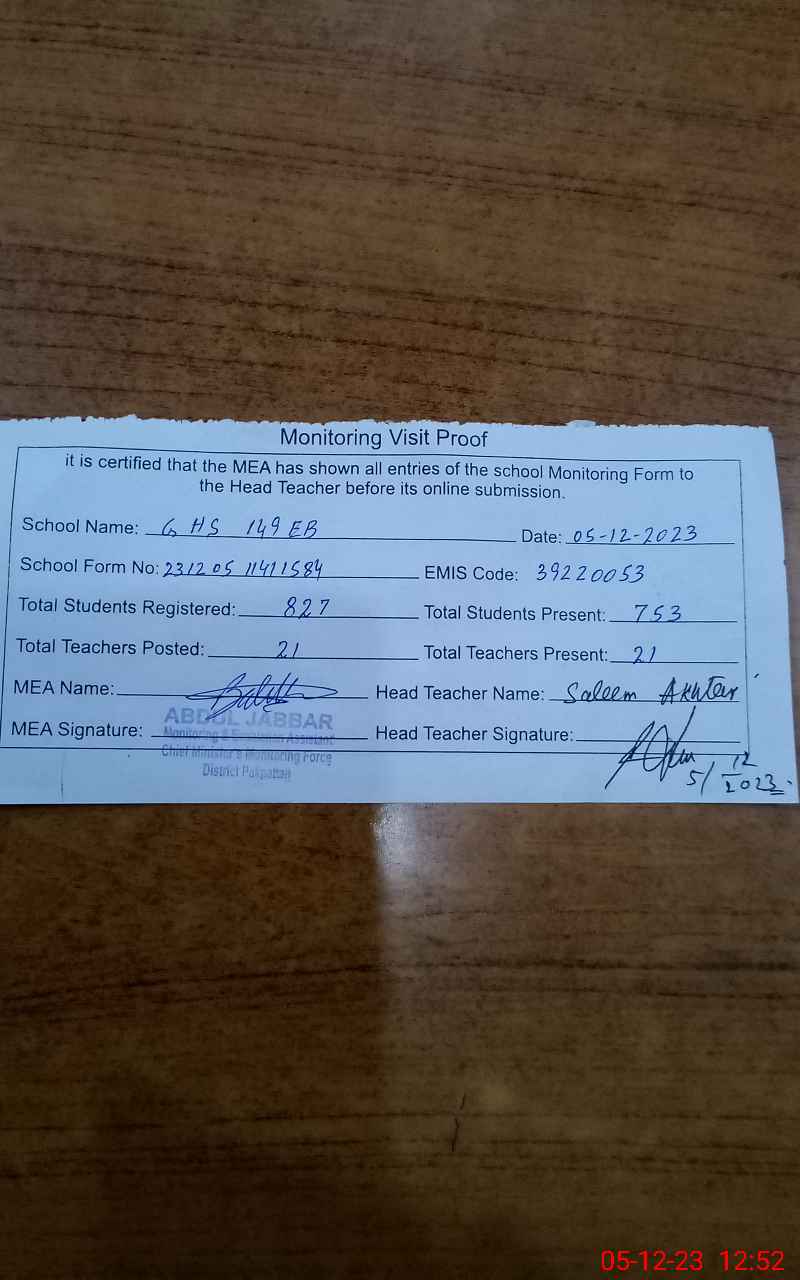 Monitoring Visit Proof
it is certified that the MEA has shown all entries of the school Monitoring Form to
the Head Teacher before its online submission.
School Name: GHS 149 EB Date: 05-12-2023
School Form No: 231205 11411584 EMIS Code: 39220053
Total Students Registered: 827 Total Students Present: 753
Total Teachers Posted: 21 Total Teachers Present: 21
MEA Name: Head Teacher Name: Saleem Akhtar
ABDUL JABBAR
MEA Signature: Head Teacher Signature:
Monitoring & Evaluation Assistant
Chief Minister's Monitoring Force
District Pakpattan
5/12/2023
05-12-23 12:52